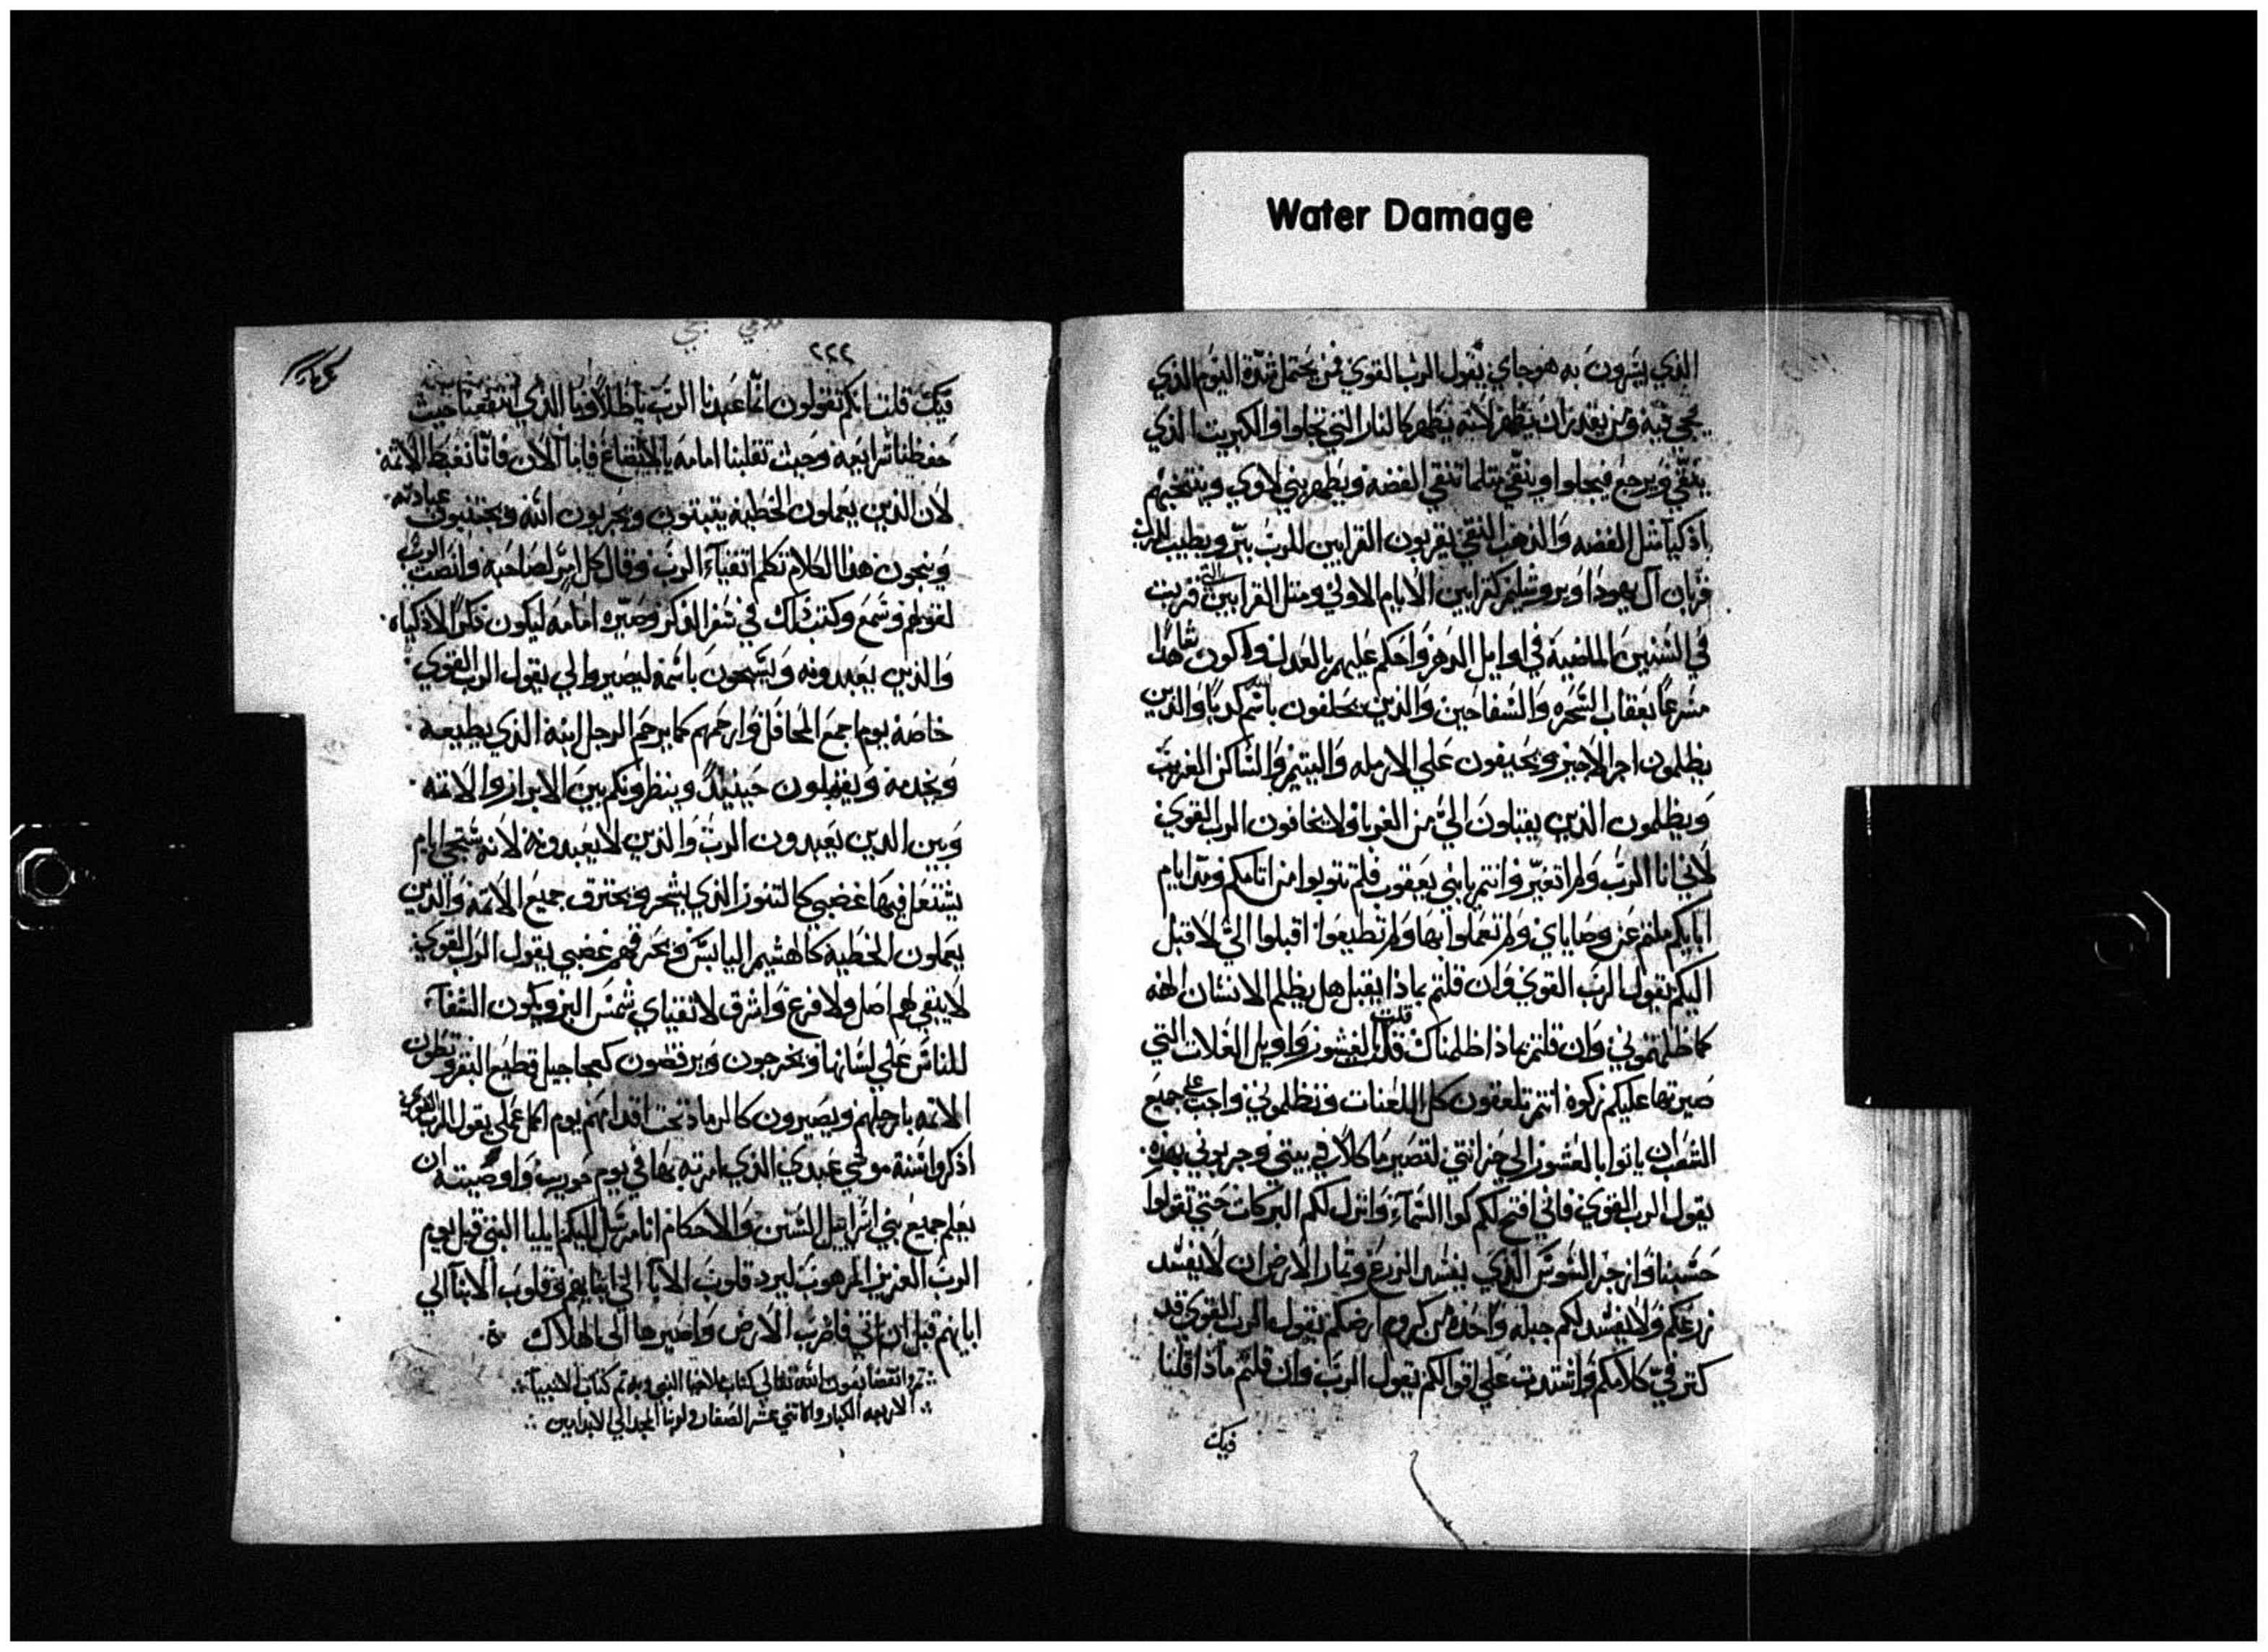 Water Damage
الذي يسرون به هوجاي يقول الرب القوي فمن يحتمل شدة اليوم الذي
يجي فيه ومن يقدر ان ينظر لانه يظهر كالنار التي تجلوا والكبريت الذي
ينقي ويرجع فيجلوا وينقي مثلما تنقي الفضه ويطهر بني لاوي وينتخبهم
اذكيا مثل الفضه والذهب النقي يقربون القرابين للرب ببر ويطيب للرب
قربان آل يهودا ويروشليم كقرابين الايام الاولي ومثل القرابين التي قربت
في السنين الماضية في اوايل الدهر واحكم عليهم بالعدل واكون شاهدا
مسرعا بعقاب السحره والسفاحين والذين يحلفون باسم كدبا والذين
يظلمون اجر الاجير ويحيفون علي الارمله واليتيم والساكن الغريب
ويظلمون الذين يقبلون الي من الغربا ولا يخافون الرب القوي
لاني انا الرب ولم اتغير وانتم يا بني يعقوب فلم تتوبوا من اثامكم ومن ايام
ابايكم ملتم عن وصاياي ولم تعملوا بها ولم تطيعوا اقبلوا الي لاقبل
اليكم يقول الرب القوي وان قلتم بماذا نقبل هل يظلم الانسان الهه
كما ظلمتموني وان قلتم بماذا ظلمناك قلت بالعشور واوايل الغلات التي
صيرتها عليكم زكوة انتم تلعنون كل اللعنات وتظلموني واجب علي جميع
الشعب ان ياتوا بالعشور الي خزانتي لتصير ماكلا في بيتي وجربوني بهذه
يقول الرب القوي فاني افتح لكم كوا السماء وانزل لكم البركات حتي تقولوا
حسبنا وازجر السوس الذي يفسد الزرع وثمار الارض ان لا يفسد
زرعكم ولا يفسد لكم حبله واحدة من كروم ارضكم يقول الرب القوي قد
كثر في كلامكم واشتدت علي اقوالكم يقول الرب وان قلتم ماذا قلنا
فيك
٢٢٢
فيك قلت انكم تقولون انما عبدنا الرب باطلا وما الذي انتفعنا حيث
حفظنا شرايعه وحيث تقلبنا امامه بالاتضاع فاما الان فانا نغبط الاثمه
لان الذين يعملون الخطيه يثبتون ويجربون الله ويجتنبون عبادته
وينجون هذا الكلام تكلم اتقياء الرب وقال كل امر لصاحبه وانصت الرب
لقولهم وسمع وكتب ذلك في سفر الذكر وصيره امامه ليكون ذكرا لاذكياه
والذين يعبدونه ويسبحون باسمه ليصيروا لي يقول الرب القوي
خاصه يوم اجمع المحافل وارحمهم كما يرحم الرجل ابنه الذي يطيعه
ويخدمه ويقبلون حينيذ وينظرونكم بين الابرار والاثمه
وبين الذين يعبدون الرب والذين لا يعبدونه لانه ستجي ايام
يشتعل فيها غضبي كالتنور الذي يسجر ويحترق جميع الاثمه والذين
يعملون الخطيه كالهشيم اليابس ويحرقهم غضبي يقول الرب القوي
لا يبقي لهم اصل ولا فرع واشرق لاتقياي شمس البر ويكون الشفاء
للناس علي لسانها ويخرجون ويرقصون كعجاجيل قطيع البقر ويطون
الاثمه بارجلهم ويصيرون كالرماد تحت اقدامهم يوم اكمل عملي يقول الرب القوي
اذكروا سنة موسي عبدي الذي امرته بها في يوم حوريب واوصيته ان
يعلم جميع بني اسراييل السنن والاحكام انا مرسل اليكم ايليا النبي قبل يوم
الرب العزيز المرهوب ليرد قلوب الابا الي ابنايهم وقلوب الابنا الي
ابايهم قبل ان اتي فاضرب الارض واصيرها الي الهلاك
تم وانقضا بعون الله تعالي كتاب ملاخيا النبي وبه تم كتاب الانبيآ
الاربعه الكبار والاثني عشر الصغار ولربنا المجد الي الابد امين